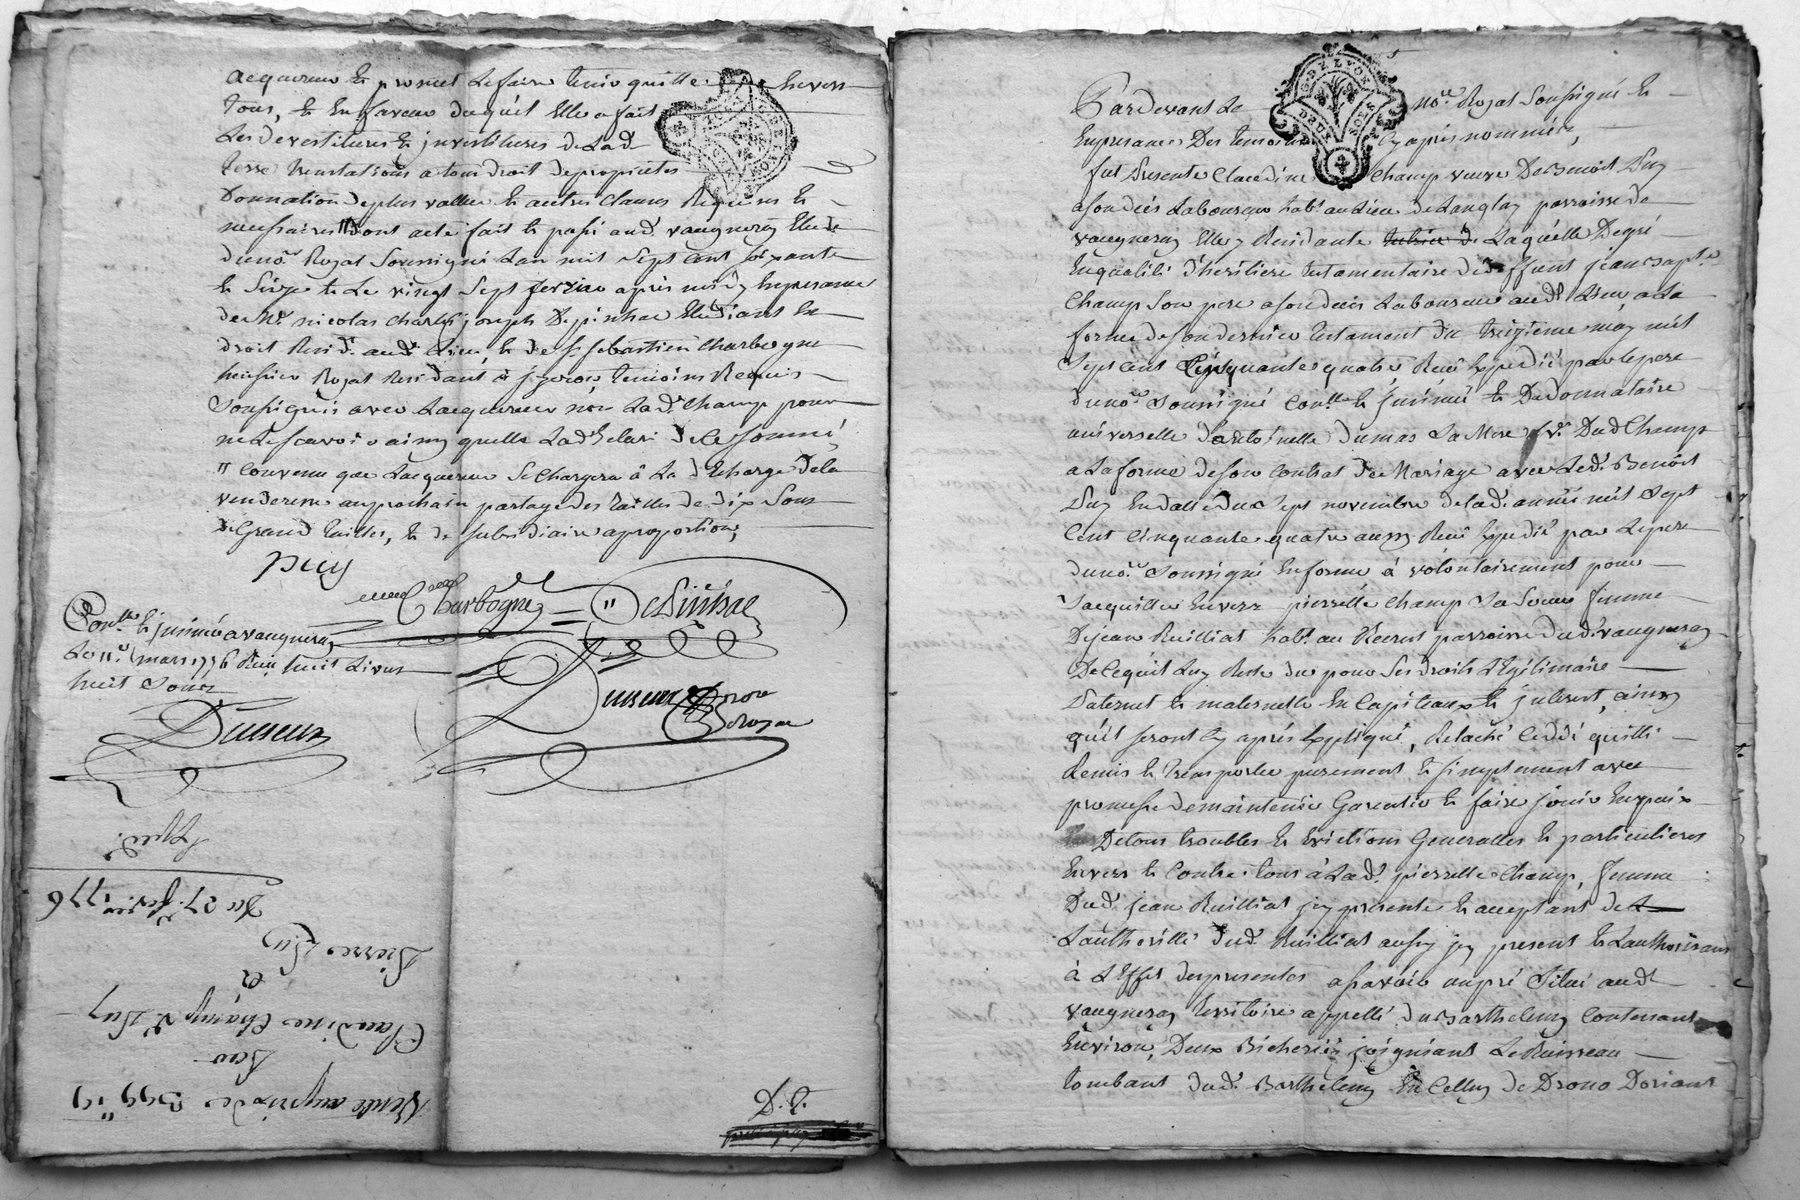 acquereur et promet le faire tenir quitte envers
tous, et en faveur duquel elle a fait
les devestitures & jnvestitures de lad.
terre venstations a tout droit de proprietes
Donnation de plus vallue et autres clauses Requises et
necessaires dont acte fait et passé aud. vaugneray Etude
du no.re Royal soussigné Lan mil sept cent soixante
et seize et le vingt sept fevrier après midy En presence
de Mr. nicolas charles joseph Depinhac Etudiant En
droit Resid. aud. Lieu, et de Sr. sebastien Charbogne
huissier Royal Residant à jzeron, temoins Requis
soussignés avec Lacquereur non Lad. Champ pour
ne le scavoir ainsy quelle Lad. declaré de ce sommé,
" Convenu que Lacquereur se chargera à La decharge de la
venderesse au prochain partage des tailles de dix sous
de Grand tailles, et de subsidiaire a proportion,
puy
Charbogne = " Depinhac
Con.llé et jnsinué a vaugneray
Le 11.e mars 1776 Reçu huit Livres
huit sous
Dumeux
Dumeux
Royal
Exped.
Du 27. fevrier 1776
Pierre Puy
à
Claudine Champ v.e Puy
par
Vente au prix de 399 ll 19
D. J.
Pardevant Le no.re Royal soussigné En
En presence Des temoins Cy après nommés,
fut presente Claudine Champ veuve De Benoit Puy
a son decès Laboureur hab.t au Lieu de Langlay parroisse de
vaugneray Elle y Residante Laquelle De gré
En qualité d'heritiere testamentaire de deffunt jean Bap.te
Champ son pere a son decès Laboureur aud. Lieu a La
forme de son dernier testament du treizieme may mil
sept cent Cinquante quatre Reçu Expedié par le pere
du no.re soussigné Con.llé et jnsinué et De donnataire
universelle d'antoinette Dumas La Mere v.e Dud Champ
a La forme de son Contrat de Mariage avec Led. Benoit
Puy En datte du sept novembre de lad. année mil sept
Cent Cinquante quatre aussy Reçu Expedié par Le pere
du no.re soussigné En forme à volontairement pour
s'acquitter Envers pierrette Champ sa soeur femme
De jean Ruilliat hab.t au Recret parroisse dud. vaugneray
De ce quil luy Reste du pour ses droits Legitimaire
Paternel et maternelle En Capiteaux et jnterest, ainsy
quil seront cy après Expliqué, Relaché Ceddé quitté
Remis et transporté purement et simplement avec
promesse de maintenir Garentir et faire jouir En paix
De tous troubles et Evictions Generalles et particulieres
Envers et Contre tous à Lad. pierrette Champ, femme
Dud. jean Ruilliat jcy presente et acceptant de
Lauthorité dud. Ruilliat aussy jcy present et Lauthorisant
à L'Effet des presentes assavoir un pré situé aud
vaugneray territoire appellé du Barthelemy Contenant
Environ, Deux Bicherées joignant Le Ruisseau
tombant dud. Barthelemy En Celluy de Drono Dorient